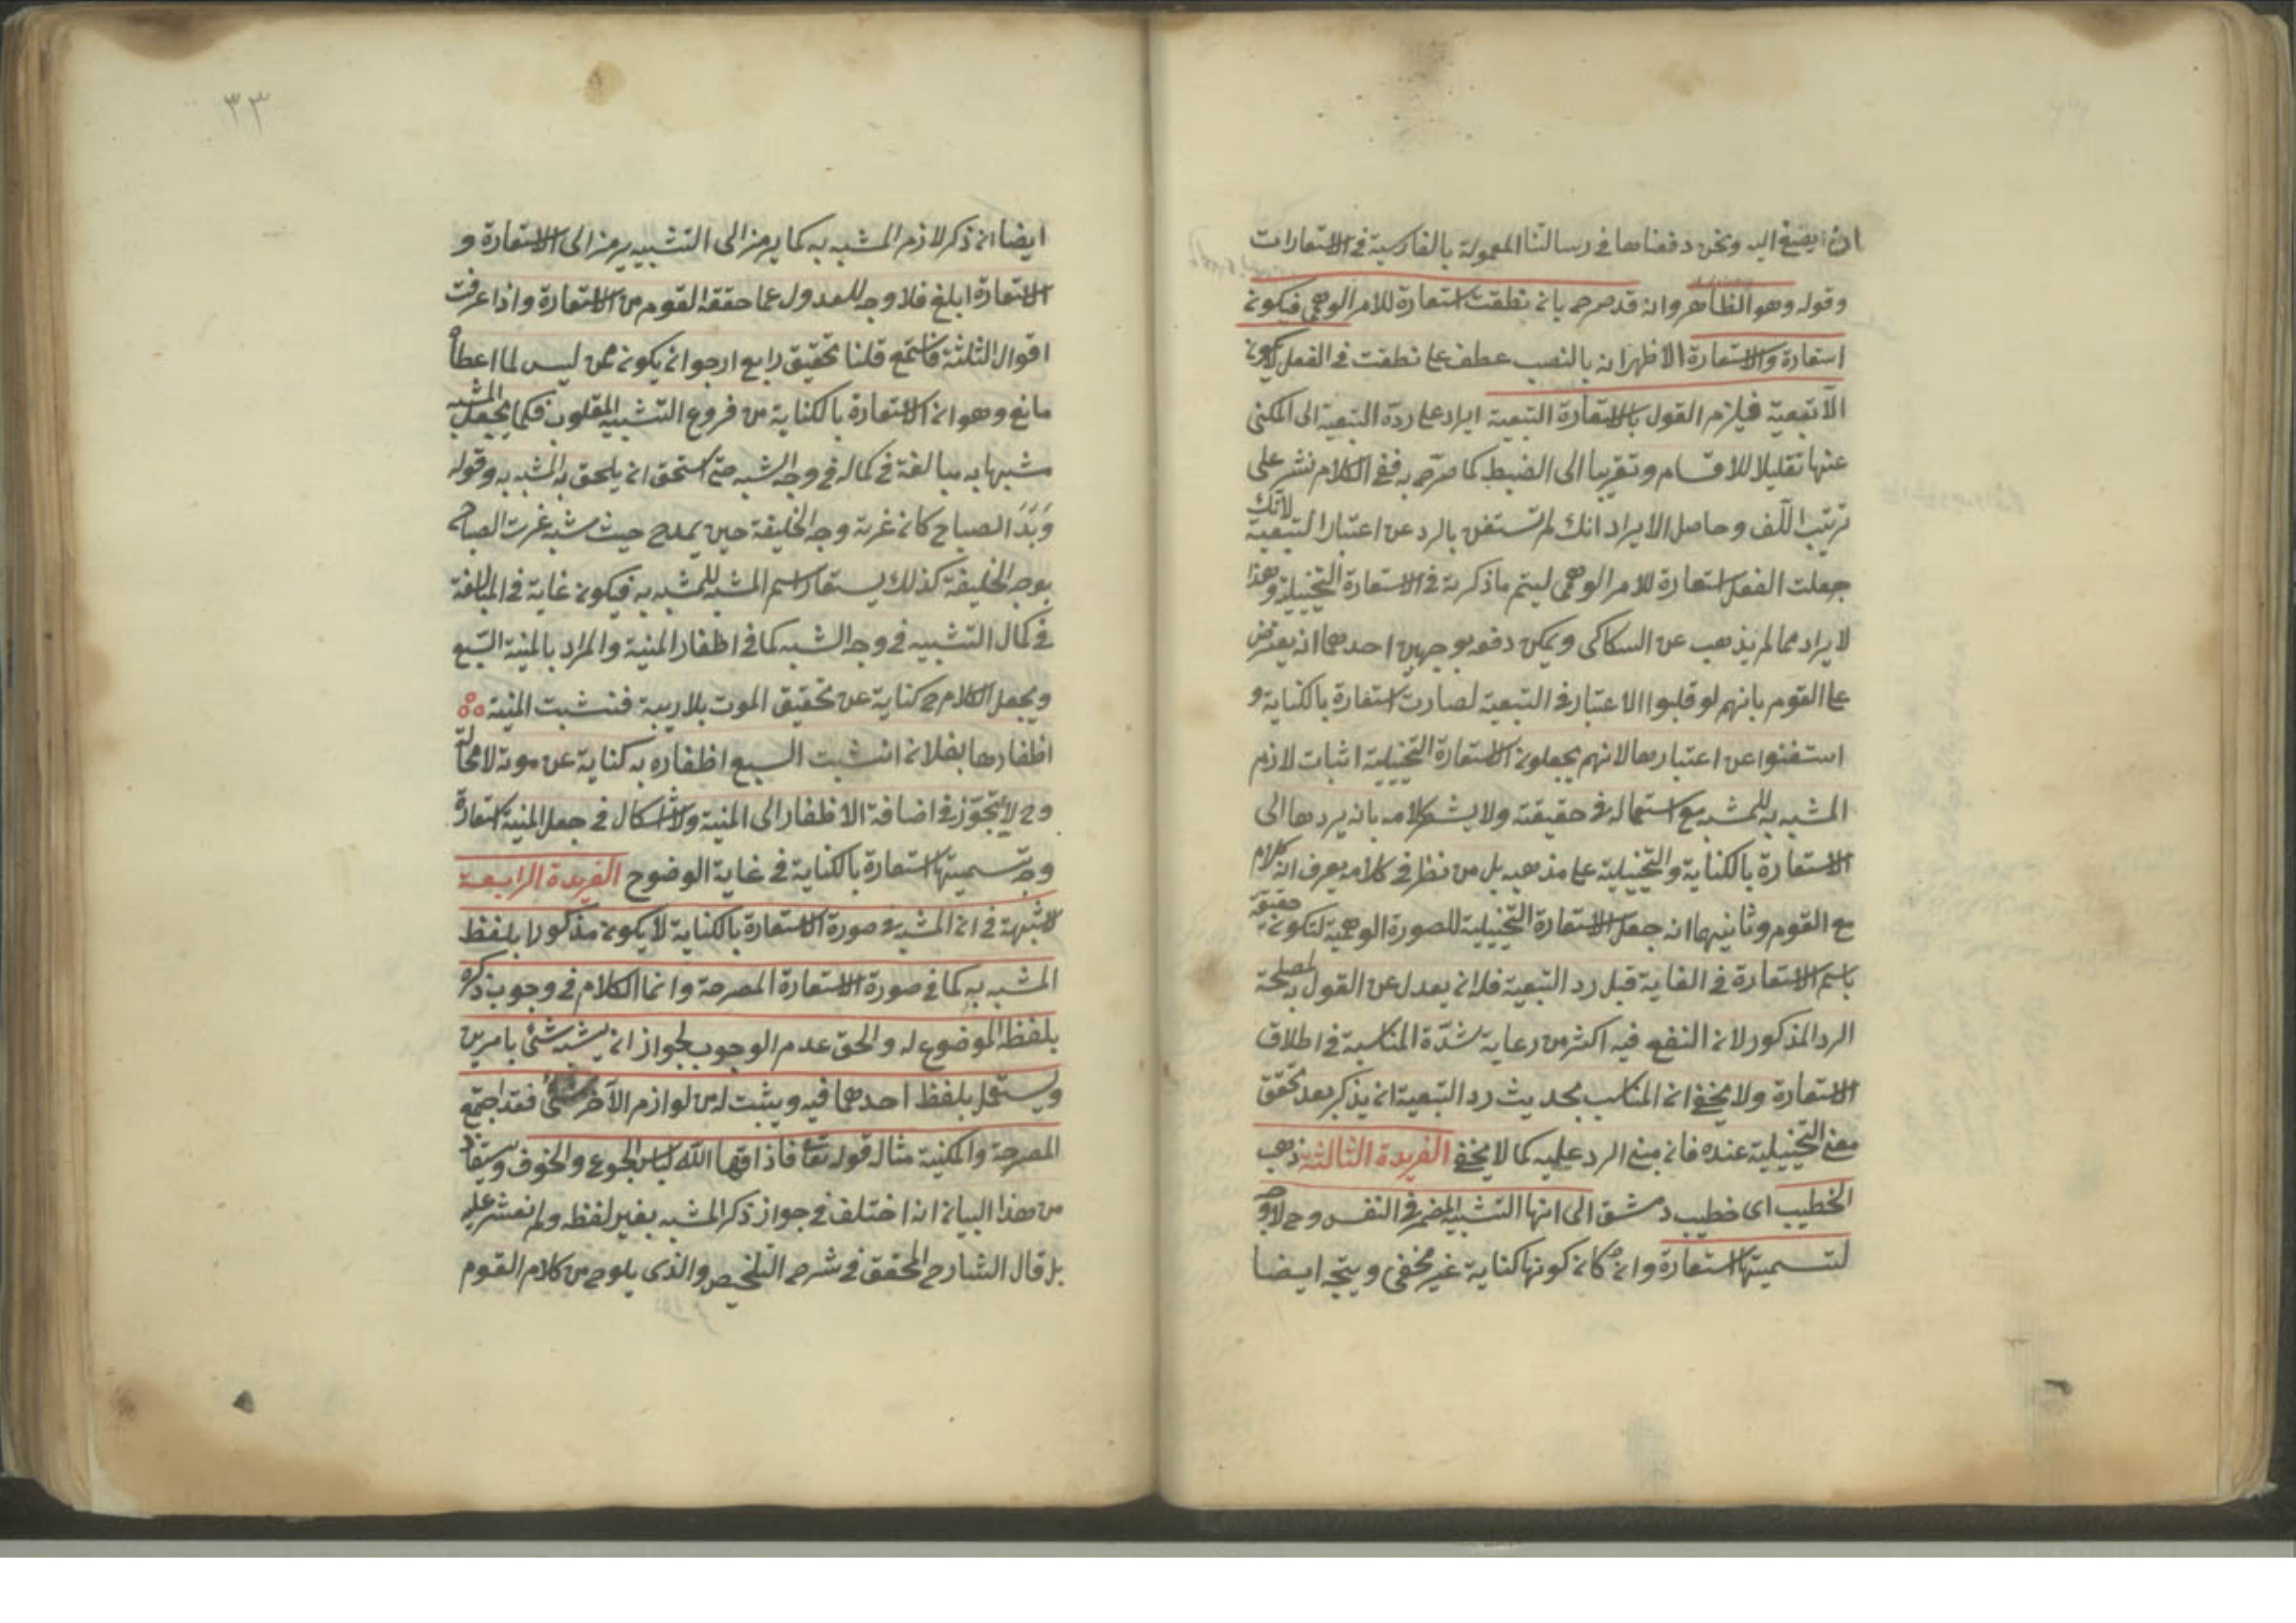 ان يصغ اليه ونحن دفعناها في رسالتنا المعمولة بالفارسية في الاستعارات
وقوله وهو الظاهر وانه قد صرح بان نطقت استعارة للامر الوهمي فيكون
استعارة والاستعارة الاظهر انه بالنصب عطف على نطقت في الفعل لا يكون
الا تبعية فيلزم القول بالاستعارة التبعية ايراد على ردّه التبعية الى المكنى
عنها تقليلا للاقسام وتقريبا الى الضبط كما صرّح به ففي الكلام نشر على
ترتيب اللّف وحاصل الايراد انك لم تستغن بالرد عن اعتبار التبعية لأنك
جعلت الفعل استعارة للامر الوهمي ليتم ما ذكرته في الاستعارة التخييلية وهذا
لايراد مما لم يذهب عن السكاكى ويمكن دفعه بوجهين احدهما انه يعترض
على القوم بانهم لو قلبوا الاعتبار في التبعية لصارت استعارة بالكناية و
استغنوا عن اعتبارها لانهم يجعلون الاستعارة التخييلية اثبات لازم
المشبه به للمشبه مع استعماله في حقيقته ولا يشعر كلامه بانه يردها الى
الاستعارة بالكناية والتخييلية على مذهبه بل من نظر في كلامه يعرف انه كلام
مع القوم وثانيهما انه جعل الاستعارة التخييلية للصورة الوهمية لتكون حقيقة
باسم الاستعارة في الغاية قبل رد التبعية فلان يعدل عن القول به لمصلحة
الرد المذكور لان النفع فيه اكثر من رعاية شدّة المناسبة في اطلاق
الاستعارة ولا يخفى ان المناسب بحديث رد التبعية ان يذكر بعد تحقق
معنى التخييلية عنده فان مبنى الرد عليه كما لا يخفى الفريدة الثالثة ذهب
الخطيب اى خطيب دمشق الى انها التشبيه المضمر في النفس وح لا وجه
لتسميتها استعارة وان كان كونها كناية غير مخفى ويتجه ايضا
٣٣
ايضا ان ذكر لازم المشبه به كما يرمز الى التشبيه يرمز الى الاستعارة و
الاستعارة ابلغ فلا وجه للعدول عما حققه القوم من الاستعارة واذا عرفت
اقوال الثلثة فاستمع قلنا تحقيق رابع ارجو ان يكون ممن ليس لما اعطاه
مانع وهو ان الاستعارة بالكناية من فروع التشبيه المقلوب فكما يجعل المشبه
مشبها به مبالغة في كماله في وجه الشبه حتى استحق ان يلحق به المشبه به وقوله
وَبَدَا الصباح كان غرته وجه الخليفة حين يمدح حيث شبه غرت الصباح
بوجه الخليفة كذلك يستعار اسم المشبه للمشبه به فيكون غاية في المبالغة
في كمال التشبيه في وجه الشبه كما في اظفار المنية والمراد بالمنية السّبع
ويجعل الكلام ح كناية عن تحقيق الموت بلا ريبة فنشبت المنية
اظفارها بفلان انشبت السبع اظفاره به كناية عن موته لا محالة
وح لا تجوّز في اضافة الاظفار الى المنية ولا اشكال في جعل المنية استعارة
ووجه تسميتها استعارة بالكناية في غاية الوضوح الفريدة الرابعة
لا شبهة في ان المشبه في صورة الاستعارة بالكناية لا يكون مذكورا بلفظ
المشبه به كما في صورة الاستعارة المصرحة وانما الكلام في وجوب ذكره
بلفظه الموضوع له والحق عدم الوجوب لجواز ان يشبه شئ بامرين
ويستعمل بلفظ احدهما فيه ويثبت له من لوازم الآخر شئ فقد اجتمع
المصرحة والمكنية مثاله قوله تعالى فاذاقها الله لباس الجوع والخوف ويستفاد
من هذا البيان انه اختلف في جواز ذكر المشبه بغير لفظه ولم نعثر عليه
بل قال الشارح المحقق في شرح التلخيص والذى يلوح من كلام القوم